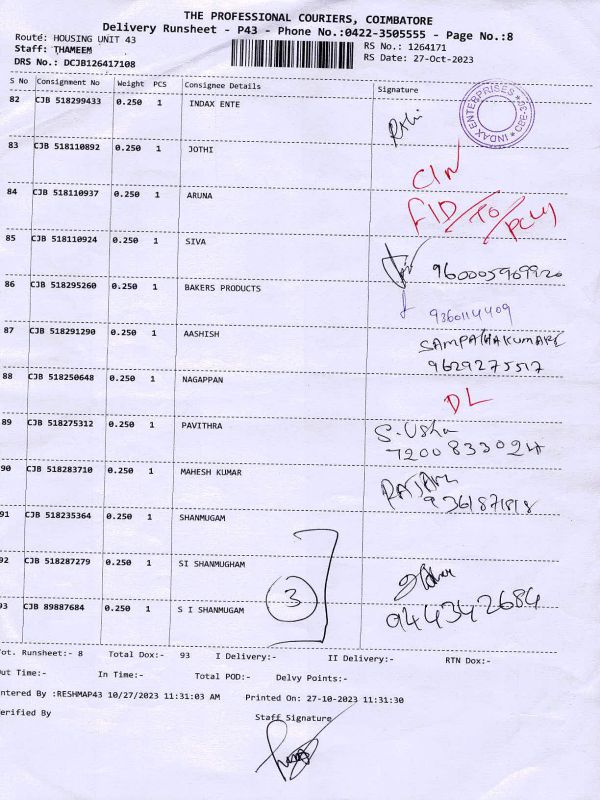 THE PROFESSIONAL COURIERS, COIMBATORE
Delivery Runsheet - P43 - Phone No.:0422-3505555 - Page No.:8
Route: HOUSING UNIT 43
RS No.: 1264171
Staff: THAMEEM
RS Date: 27-Oct-2023
DRS No.: DCJB126417108
S No Consignment No Weight PCS Consignee Details Signature
82 CJB 518299433 0.250 1 INDAX ENTE
INDAX ENTERPRISES
83 CJB 518110892 0.250 1 JOTHI
84 CJB 518110937 0.250 1 ARUNA
85 CJB 518110924 0.250 1 SIVA
86 CJB 518295260 0.250 1 BAKERS PRODUCTS
9360114409
87 CJB 518291290 0.250 1 AASHISH
9629275517
88 CJB 518250648 0.250 1 NAGAPPAN
DL
89 CJB 518275312 0.250 1 PAVITHRA S.Usha
7200833024
90 CJB 518283710 0.250 1 MAHESH KUMAR
9361871818
91 CJB 518235364 0.250 1 SHANMUGAM
92 CJB 518287279 0.250 1 SI SHANMUGHAM
93 CJB 89887684 0.250 1 S I SHANMUGAM 3 944342684
Tot. Runsheet:- 8 Total Dox:- 93 I Delivery:- II Delivery:- RTN Dox:-
Out Time:- In Time:- Total POD:- Delvy Points:-
Entered By :RESHMAP43 10/27/2023 11:31:03 AM Printed On: 27-10-2023 11:31:30
Verified By Staff Signature